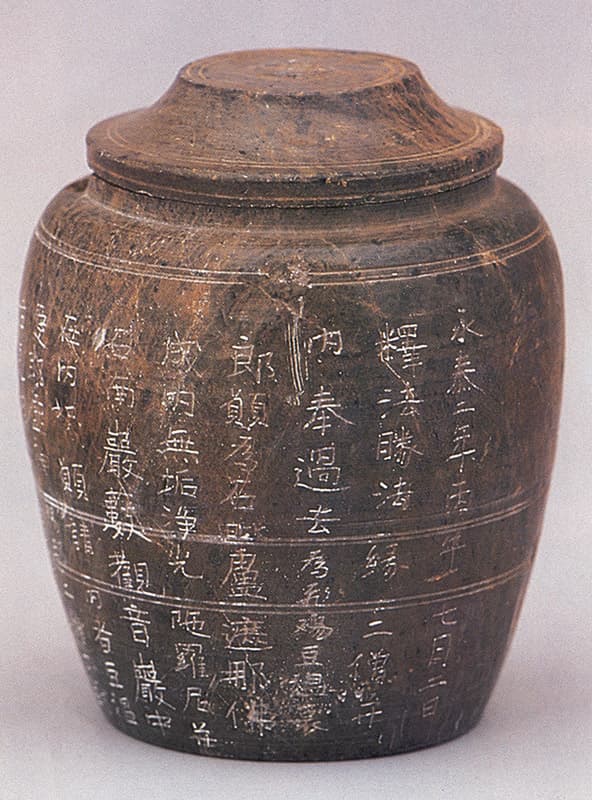 永泰二年丙午七月二日
釋法勝法緣二僧幷
內奉過去爲飛賜豆溫哀
郎願爲石毗盧遮那佛
成內無垢淨光陀羅尼幷
石南巖藪觀音巖中
在內如願請內者豆溫